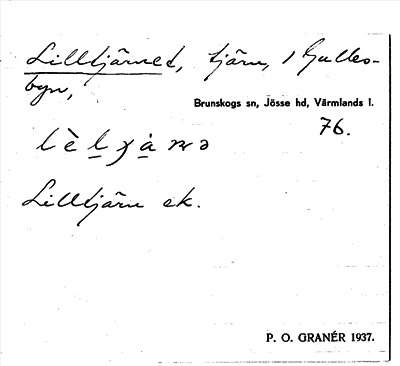 Lilltjärnet, tjärn, i Gulles-
byn,
Brunskogs sn, Jösse hd, Värmlands l.
76.
Lilltjärn ek.
P. O. GRANÉR 1937.